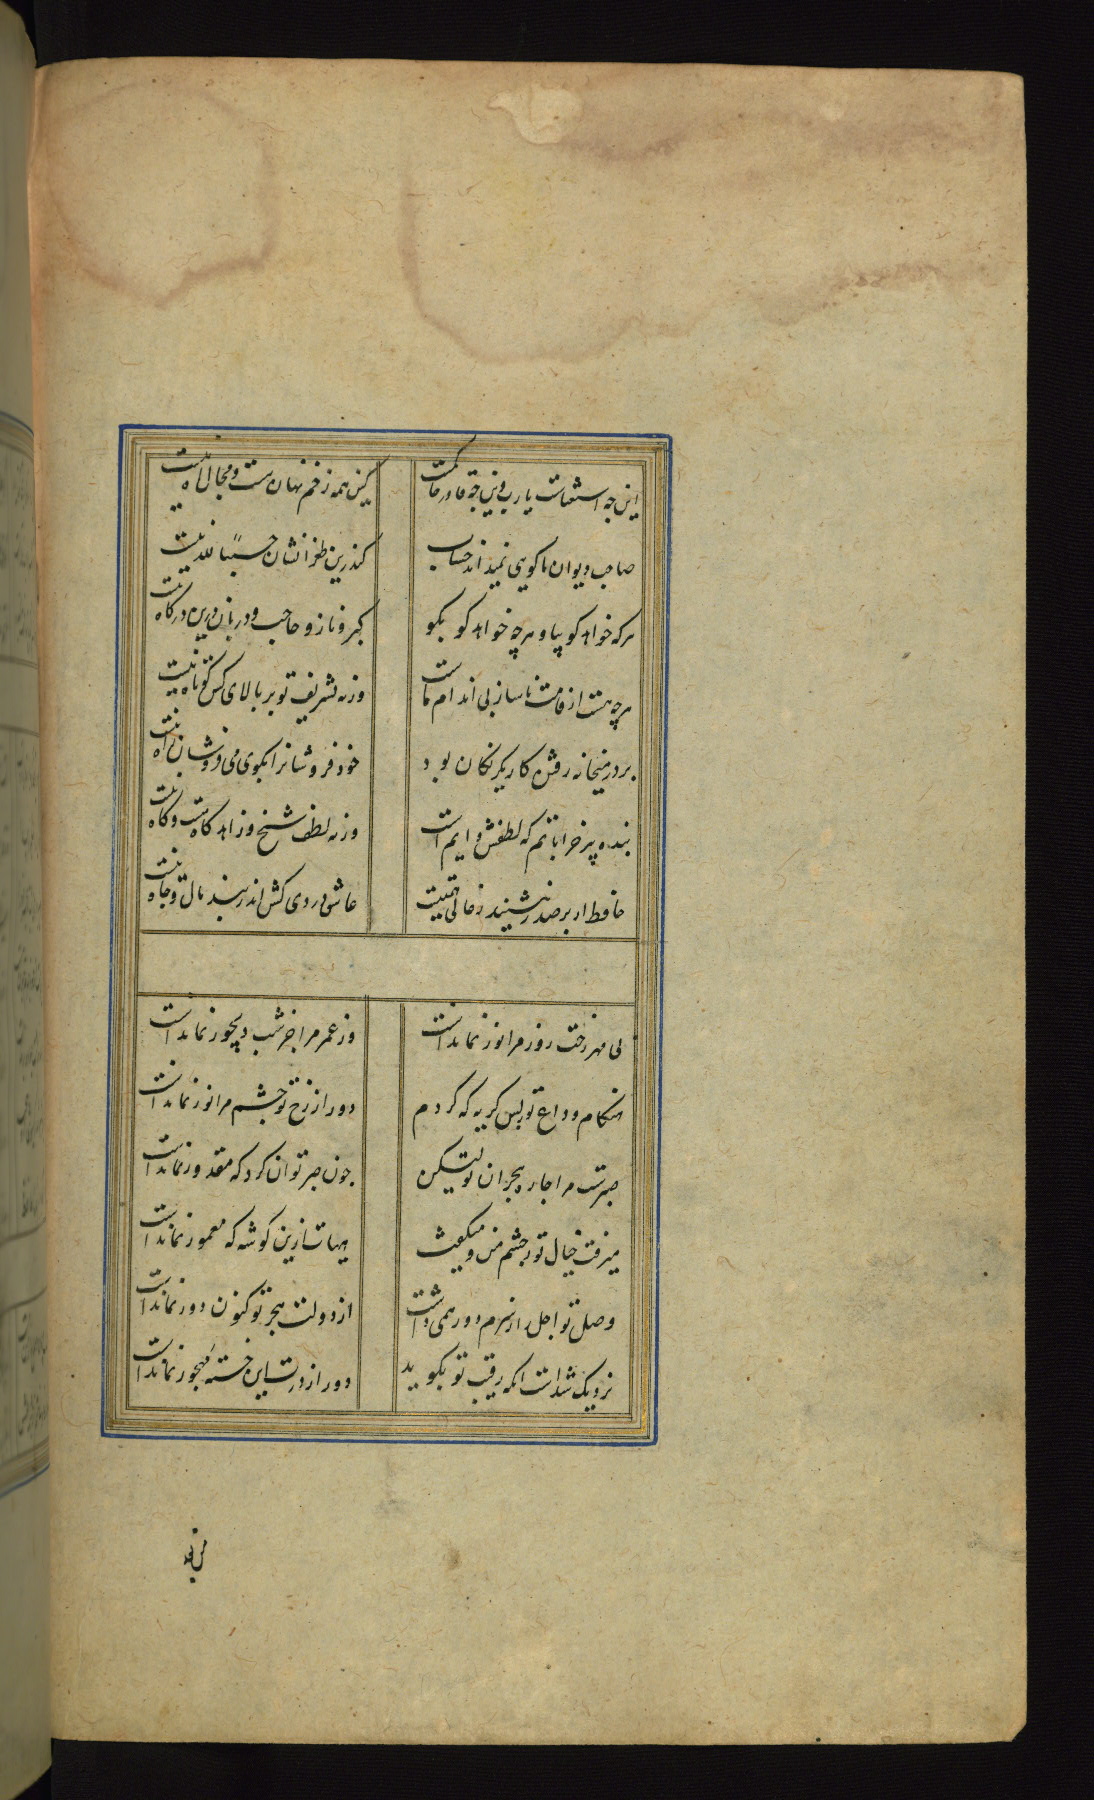 این چه استغناست یارب وین چه قادر حاکمست کین همه زخم نهان هست و مجال آه نیست
صاحب دیوان ما گویی نمیداند حساب کندرین طغرا نشان حسبةً لله نیست
هرکه خواهد کو بیا و هرچه خواهد کو بگو کبر و ناز و حاجب و دربان درین درگاه نیست
هرچه هست از قامت ناساز بی اندام ماست ورنه تشریف تو بر بالای کس کوتاه نیست
بر در میخانه رفتن کار یکرنگان بود خود فروشانرا بکوی می فروشان راه نیست
بنده پیر خراباتم که لطفش دایم است ورنه لطف شیخ و زاهد گاه هست و گاه نیست
حافظ ار بر صدر ننشیند ز عالی همتیست عاشق دردی کش اندر بند مال و جاه نیست
بی مهر رخت روز مرا نور نماندست وز عمر مرا جز شب دیجور نماندست
هنگام وداع تو ز بس گریه که کردم دور از رخ تو چشم مرا نور نماندست
صبرست مرا چاره هجران تو لیکن چون صبر توان کرد که مقدور نماندست
میرفت خیال تو ز چشم من و میگفت هیهات ازین گوشه که معمور نماندست
وصل تو اجل را ز سرم دور همی داشت از دولت هجر تو کنون دور نماندست
نزدیک شد آندم که رقیب تو بگوید دور از درت این خسته مهجور نماندست
من بعد